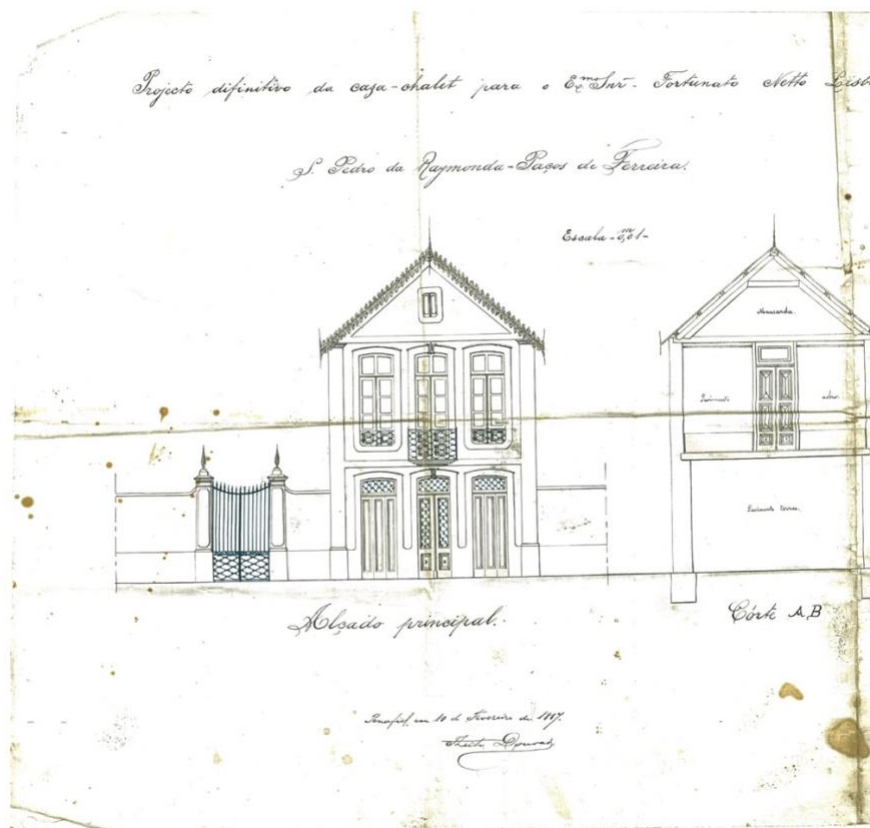 Projecto difinitivo da casa-chalet para o Ex.mo Snr. Fortunato Netto Lisb
S. Pedro da Raymonda-Paços de Ferreira.
Escala-0,m01-
Mansarda.
Pavimento nobre
Pavimento terreo.
Alçado principal.
Córte A,B
Penafiel, em 10 de Fevereiro de